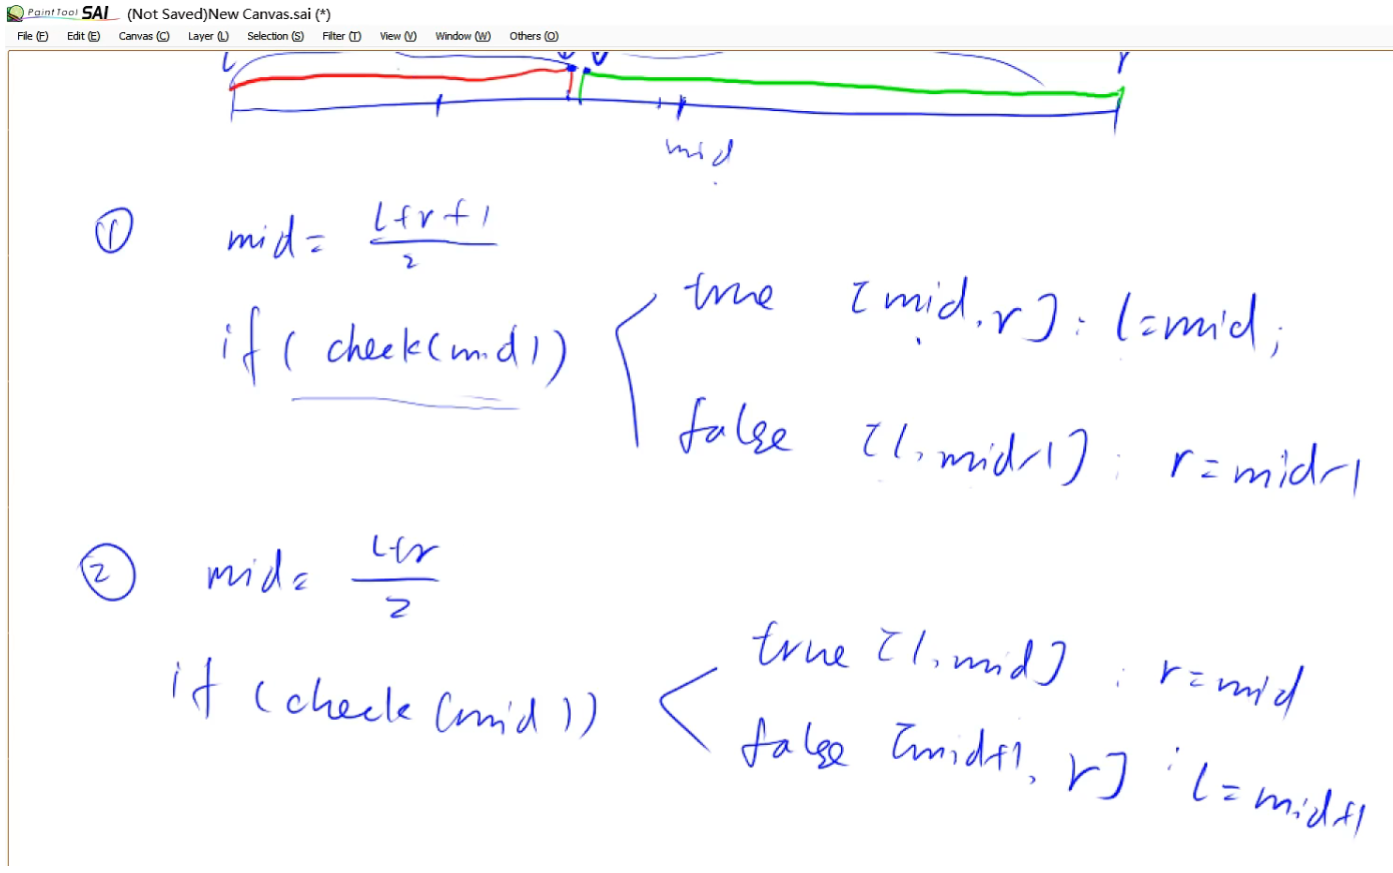 PaintTool SAI (Not Saved)New Canvas.sai (*)
File (F) Edit (E) Canvas (C) Layer (L) Selection (S) Filter (T) View (V) Window (W) Others (O)
l r
mid
① mid = (l+r+1)/2
if ( check(mid) )
true [mid, r] : l=mid;
false [l, mid-1] : r=mid-1
② mid = (l+r)/2
if (check (mid))
true [l, mid] : r=mid
false [mid+1, r] : l=mid+1